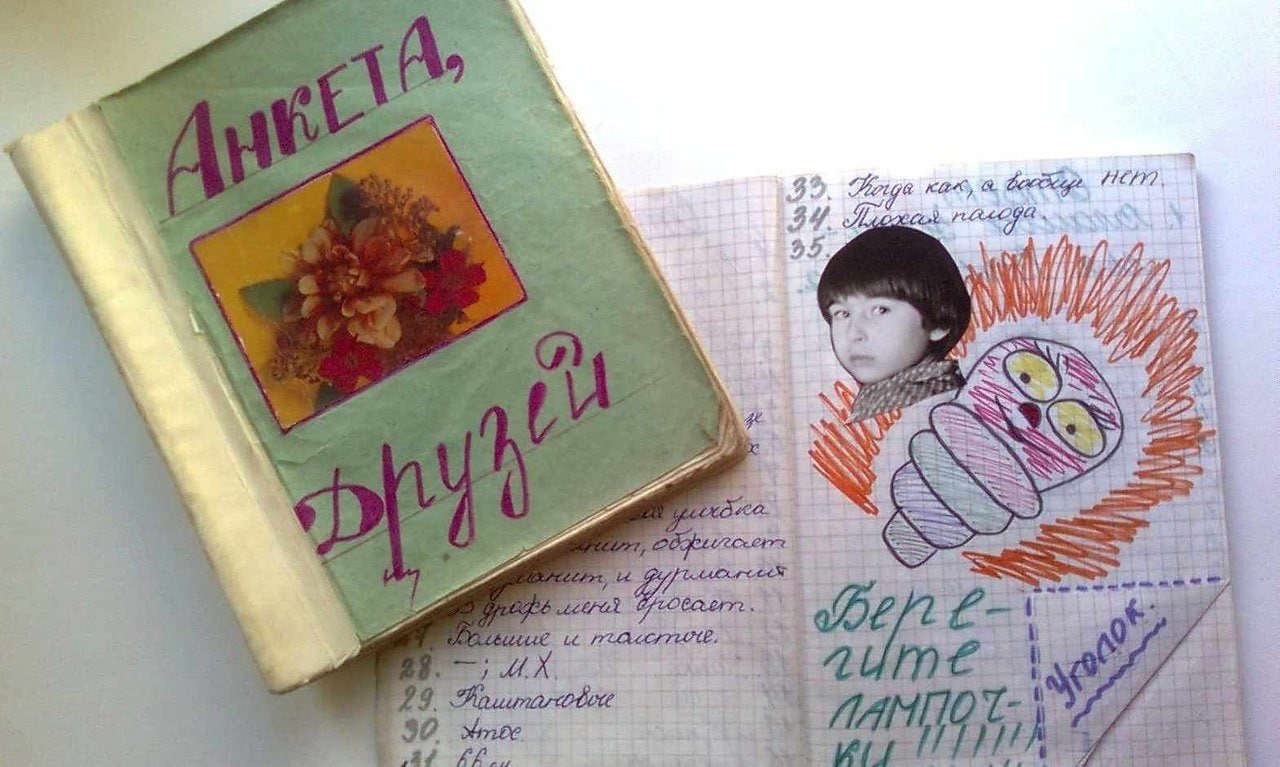 АНКЕТА,
Друзей
ла улыбка
нит, обжигает
манит, и дурманит
В дрожь меня бросает.
27. Большие и толстые.
28. —; М.Х
29. Каштановые
30. Атос
31.
33. Когда как, а вообще нет.
34. Плохая пагода.
35.
Бере-
гите
лампоч-
ки !!!!!!!
Уголок.